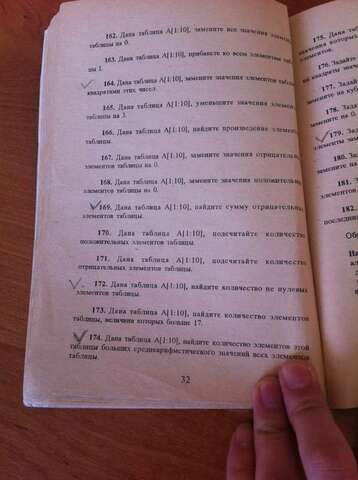 162. Дана таблица А[1:10], замените все значения элементов
таблицы на 0.
163. Дана таблица А[1:10], прибавьте ко всем элементам
цы 1.
164. Дана таблица А[1:10], замените значения элементов
квадратами этих чисел.
165. Дана таблица А[1:10], уменьшите значения
таблицы на 3.
166. Дана таблица А[1:10], найдите произведение
таблицы.
167. Дана таблица А[1:10], замените значения отрицательн
элементов таблицы на 0.
168. Дана таблица А[1:10], замените значения положительн
элементов таблицы на 0.
169. Дана таблица А[1:10], найдите сумму отрицательных
элементов таблицы.
170. Дана таблица А[1:10], подсчитайте количество
положительных элементов таблицы.
171. Дана таблица А[1:10], подсчитайте количество
отрицательных элементов таблицы.
172. Дана таблица А[1:10], найдите количество не нулевых
элементов таблицы.
173. Дана таблица А[1:10], найдите количество элементов
таблицы, величина которых больше 17.
174. Дана таблица А[1:10], найдите количество элементов этой
таблицы больших среднеарифметического значений всех элементов
таблицы.
32
175. Дана
значения которых
элементов.
176. Задайте
на квадраты значе
177.
замените на куб
178. Зад
замените на 0.
179.
элементы зам
180.
замените на
181.
182.
последни